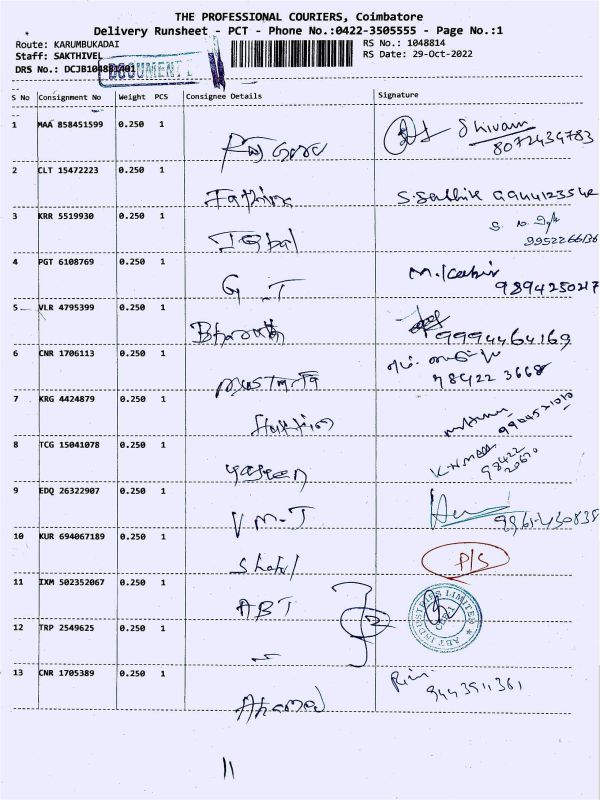 THE PROFESSIONAL COURIERS, Coimbatore
Delivery Runsheet - PCT - Phone No.:0422-3505555 - Page No.:1
Route: KARUMBUKADAI
RS No.: 1048814
Staff: SAKTHIVEL
RS Date: 29-Oct-2022
DRS No.: DCJB104881401
DOCUMENT
S No Consignment No Weight PCS Consignee Details Signature
1 MAA 858451599 0.250 1 Shivam
8072434783
2 CLT 15472223 0.250 1 Fathima
3 KRR 5519930 0.250 1 Iqbal
9952266136
4 PGT 6108769 0.250 1 G-T M.Kabir
9894250217
5 VLR 4795399 0.250 1 Bharath
9994464169
6 CNR 1706113 0.250 1 Mustafa
98422 3668
7 KRG 4424879 0.250 1
8 TCG 15041078 0.250 1 yaseen
98422
20670
9 EDQ 26322907 0.250 1 V M-T
10 KUR 694067189 0.250 1 P/S
11 IXM 502352067 0.250 1 ABT 2
ABT INDUSTRIES LIMITED
12 TRP 2549625 0.250 1 -"-
13 CNR 1705389 0.250 1 Ahamed
9443511361
11